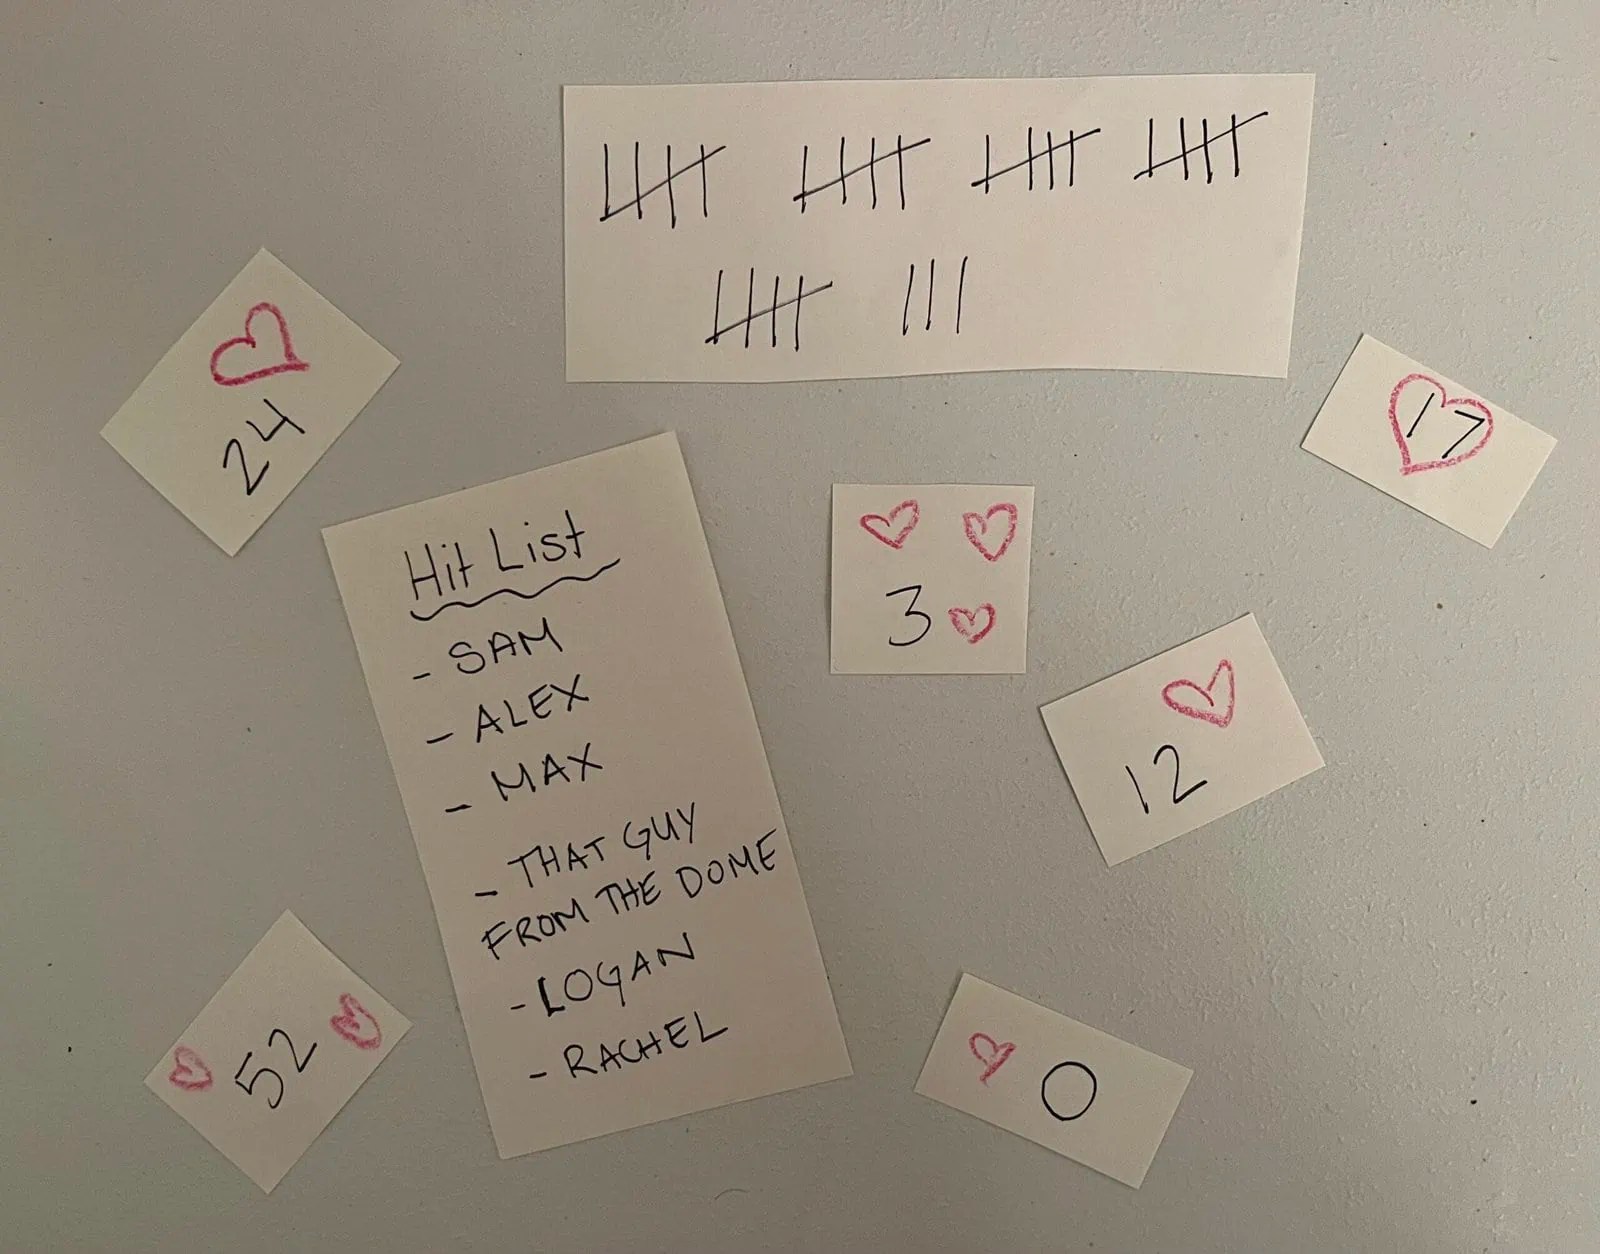 24
17
Hit List
- SAM
- ALEX
- MAX
- THAT GUY
FROM THE DOME
- LOGAN
- RACHEL
3
12
52
0